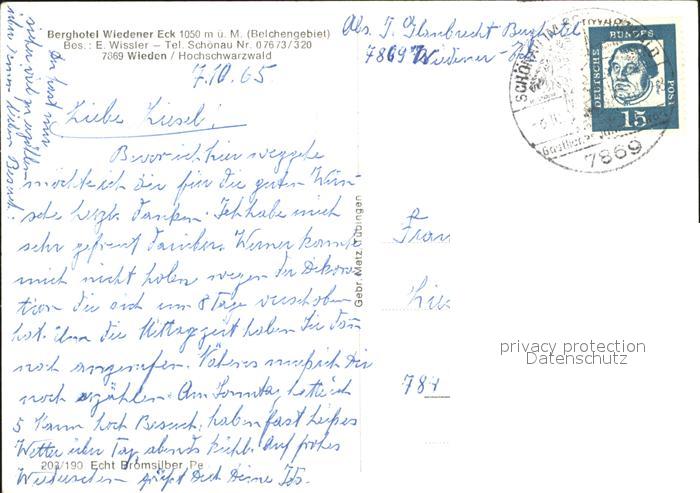 Berghotel Wiedener Eck 1050 m ü. M. (Belchengebiet)
Bes.: E. Wissler – Tel. Schönau Nr. 07673/320
7869 Wieden / Hochschwarzwald
Abs. J. Glambrecht Berghotel
7869 Wiedener-
7.10.65
Liebe Liesel!
Bevor ich hier weggehe
möchte ich Dir für die guten Wün-
sche herzl. danken. Ich habe mich
sehr gefreut darüber. Werner konnte
mich nicht holen wegen der Dekora-
tion die sich um 8 Tage verschoben
hat. Um die Mittagszeit haben Sie
noch angerufen. Näheres muß ich Dir
noch erzählen. Am Sonntag hatte ich
5 Mann hoch Besuch, haben fast heißes
Wetter über Tag, abends kühl. Auf frohes
Wiedersehen grüßt Dich Deine
Du hast mir
sicher viel zu erzählen
über Deinen lieben Besuch.
203/190 Echt Bromsilber
Gebr. Metz Tübingen
DEUTSCHE
BUNDES
POST
15
SCHÖNAU
7869
Frau
Lies
78
privacy protection
Datenschutz